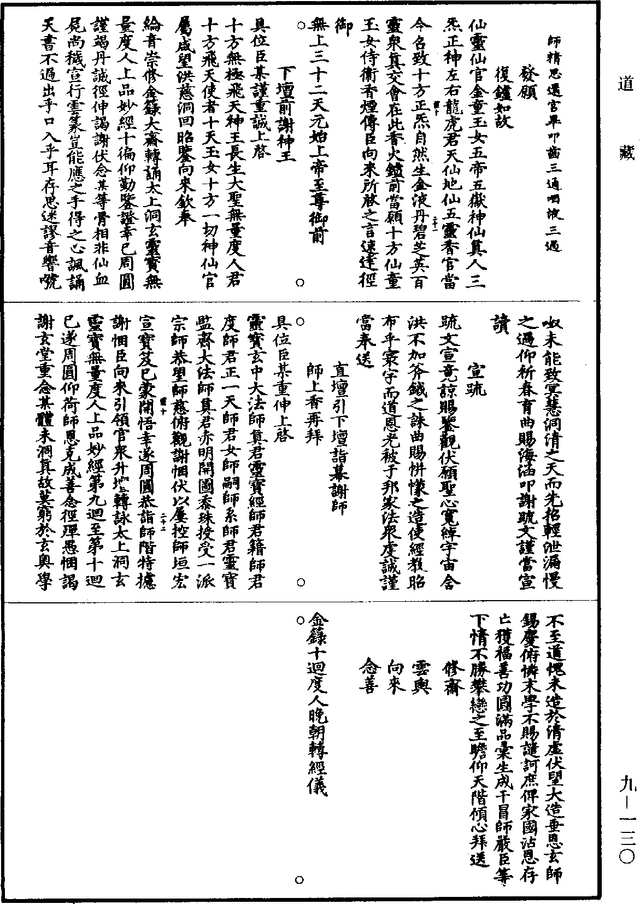 道藏
師精思還宮畢叩齒三通咽液三過
發願
復鑪如故
仙靈仙官金童玉女五帝五嶽神仙真人三
炁正神左右龍虎君天仙地仙五靈香官當
今召致十方正炁自然生金液丹碧芝英百
靈衆真交會在此香火鑪前當願十方仙童
玉女侍衛香煙傳臣向來所啓之言速達徑
御
無上三十二天元始上帝至尊御前
下壇前謝神王
具位臣某謹重誠上啓
十方無極飛天神王長生大聖無量度人君
十方飛天使者十天玉女十方一切神仙官
屬咸望洪慈洞回昭鑒向來欽奉
綸音崇修金籙大齋轉誦太上洞玄靈寶無
量度人上品妙經十徧仰勤鑒證幸已周圓
謹竭丹誠徑伸謁謝伏念某等骨相非仙血
屍尚穢宣行雲篆豈能應之手得之心諷誦
天書不過出乎口入乎耳存思迷謬音響號
呶未能致定慧洞清之天而先招輕泄漏慢
之過仰祈眷育曲賜海涵叩謝䟽文謹當宣
讀
宣䟽
䟽文宣竟諒賜鑒觀伏願聖心寬綽宇宙含
洪不加斧鉞之誅曲賜帡幪之造使經教昭
布乎寰宇而道恩光被于邦家法衆虔誠謹
當奉送
直壇引下壇詣幕謝師
師上香再拜
具位臣某重伸上啓
靈寶玄中大法師真君靈寶經師君籍師君
度師君正一天師君女師嗣師系師君靈寶
監齋大法師真君赤明開圖黍珠授受一派
宗師恭望師慈俯觀謝悃伏以屢控師垣宏
宣寶芨已蒙開悟幸遂周圓恭詣師階特攄
謝悃臣向來引領官衆升壇轉詠太上洞玄
靈寶無量度人上品妙經第九迴至第十迴
已遂周圓仰荷師恩克成善念徑殫愚悃謁
謝玄堂重念某體未洞真故莫窮於玄奧學
不至道愧未造於清虛伏望大造垂恩玄師
錫慶俯憐末學不賜譴訶庶俾家國沾恩存
亡獲福善功圓滿品彙生成干冒師嚴臣等
下情不勝攀戀之至瞻仰天階傾心拜送
修齋
雲輿
向來
念善
金籙十迴度人晚朝轉經儀
九—一三〇